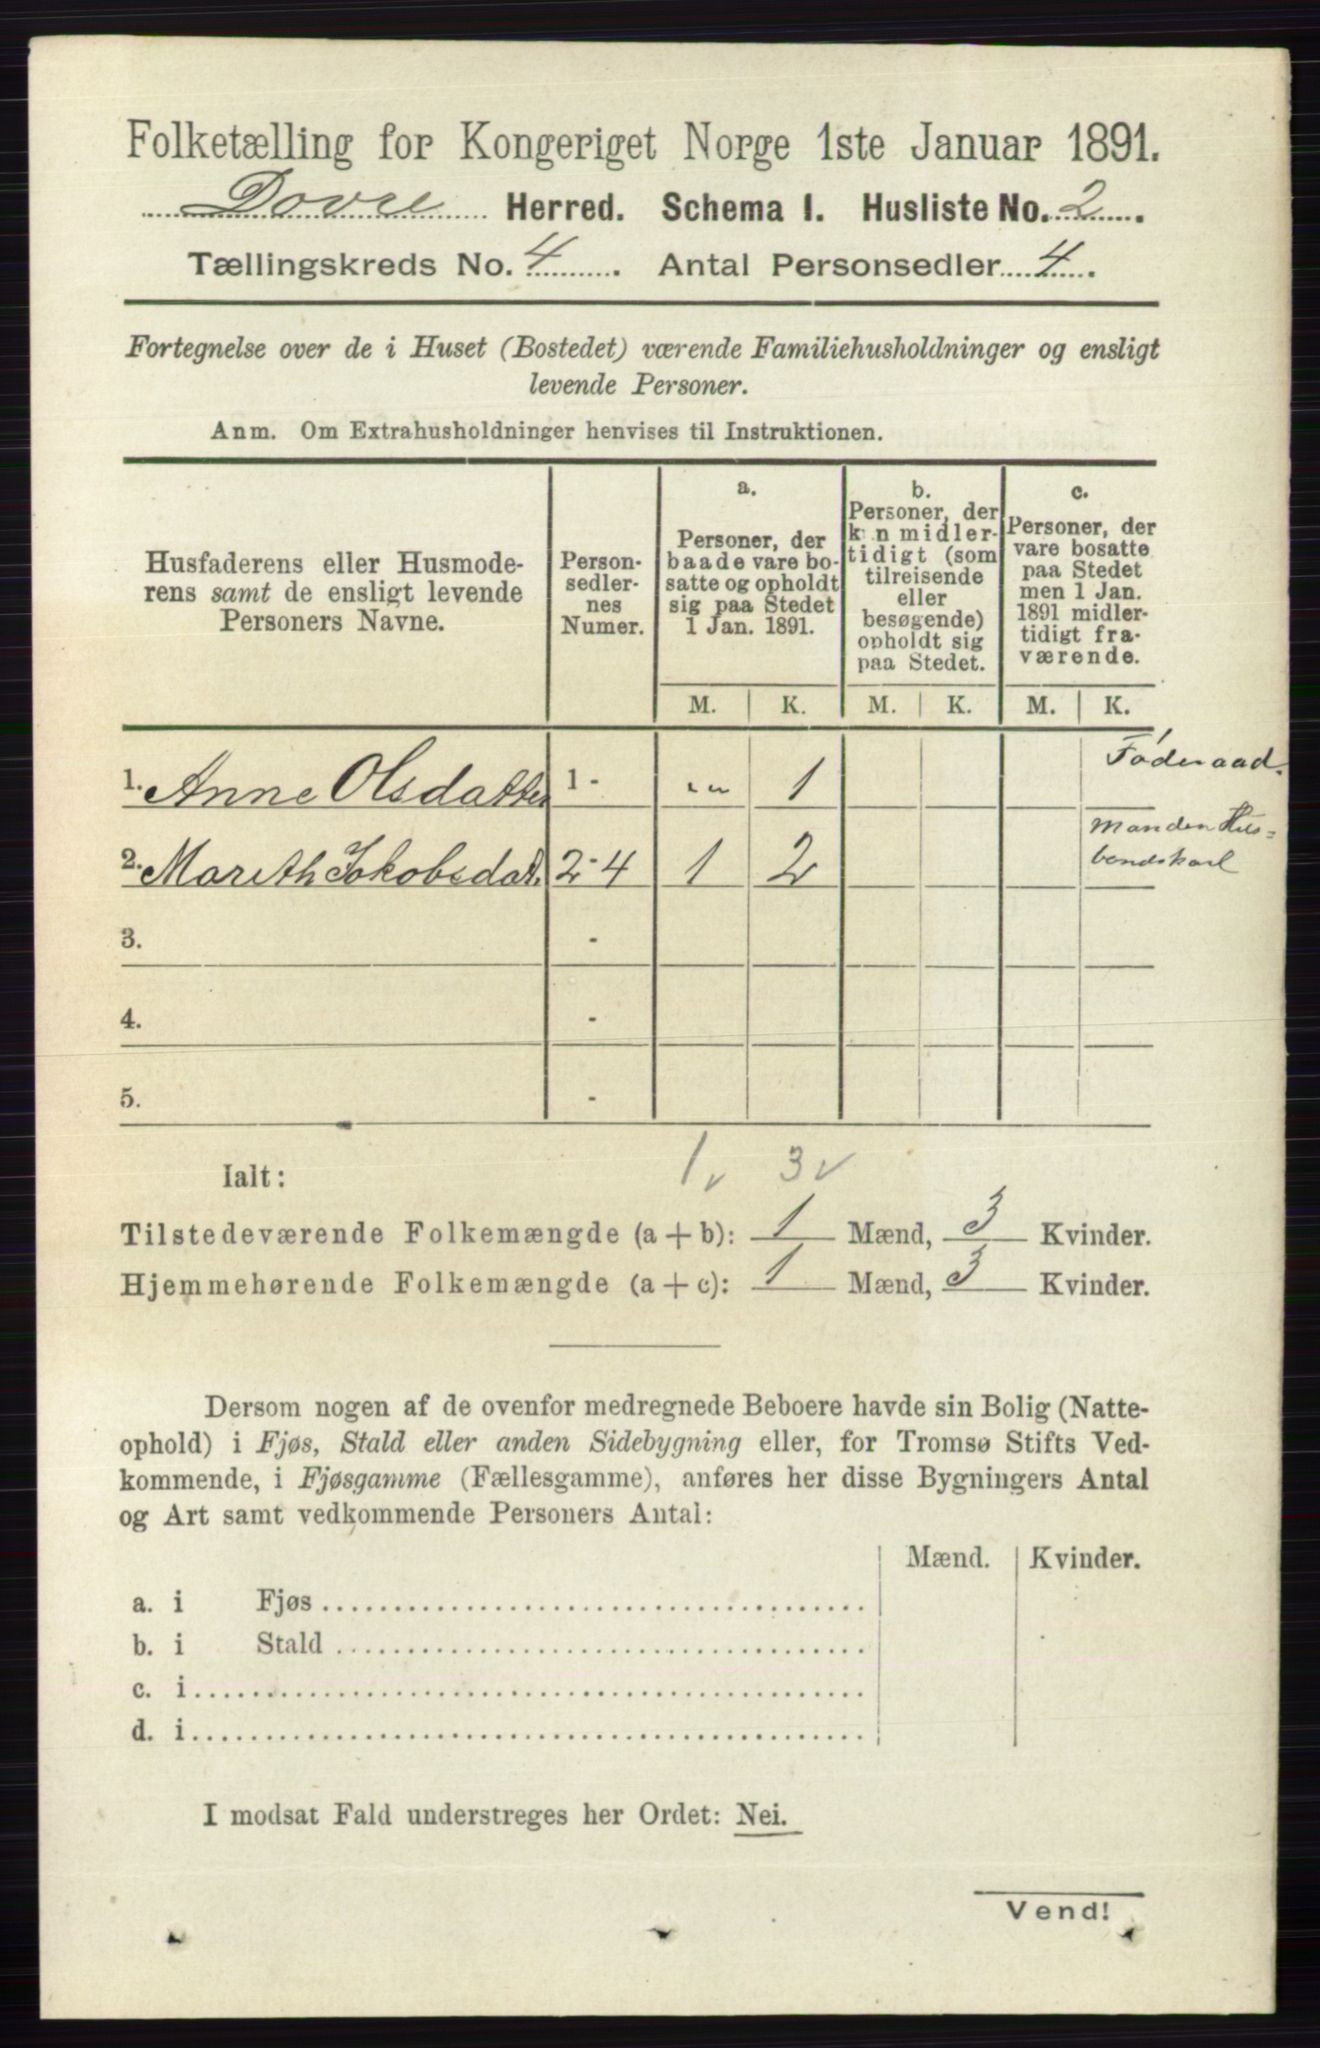 Folketælling for Kongeriget Norge 1ste Januar 1891.
Dovre Herred. Schema I. Husliste No. 2.
Tællingskreds No. 4. Antal Personsedler 4.
Fortegnelse over de i Huset (Bostedet) værende Familiehusholdninger og ensligt
levende Personer.
Anm. Om Extrahusholdninger henvises til Instruktionen.
Husfaderens eller Husmode-
rens samt de ensligt levende
Personers Navne.
Person-
sedler-
nes
Numer.
a.
Personer, der
baade vare bo-
satte og opholdt
sig paa Stedet
1 Jan. 1891.
b.
Personer, der
kun midler-
tidigt (som
tilreisende
eller
besøgende)
opholdt sig
paa Stedet.
c.
Personer, der
vare bosatte
paa Stedet
men 1 Jan.
1891 midler-
tidigt fra-
værende.
M. K. M. K. M. K.
1. Anne Olsdatter 1 - 1 Føderaad.
2. Marith Jokobsdat. 2-4 1 2 Manden Hus-
bondskarl
3. -
4. -
5. -
Ialt: 1 3
Tilstedeværende Folkemængde (a + b): 1 Mænd, 3 Kvinder.
Hjemmehørende Folkemængde (a + c): 1 Mænd, 3 Kvinder.
Dersom nogen af de ovenfor medregnede Beboere havde sin Bolig (Natte-
ophold) i Fjøs, Stald eller anden Sidebygning eller, for Tromsø Stifts Ved-
kommende, i Fjøsgamme (Fællesgamme), anføres her disse Bygningers Antal
og Art samt vedkommende Personers Antal:
Mænd. Kvinder.
a. i Fjøs
b. i Stald
c. i
d. i
I modsat Fald understreges her Ordet: Nei.
Vend!